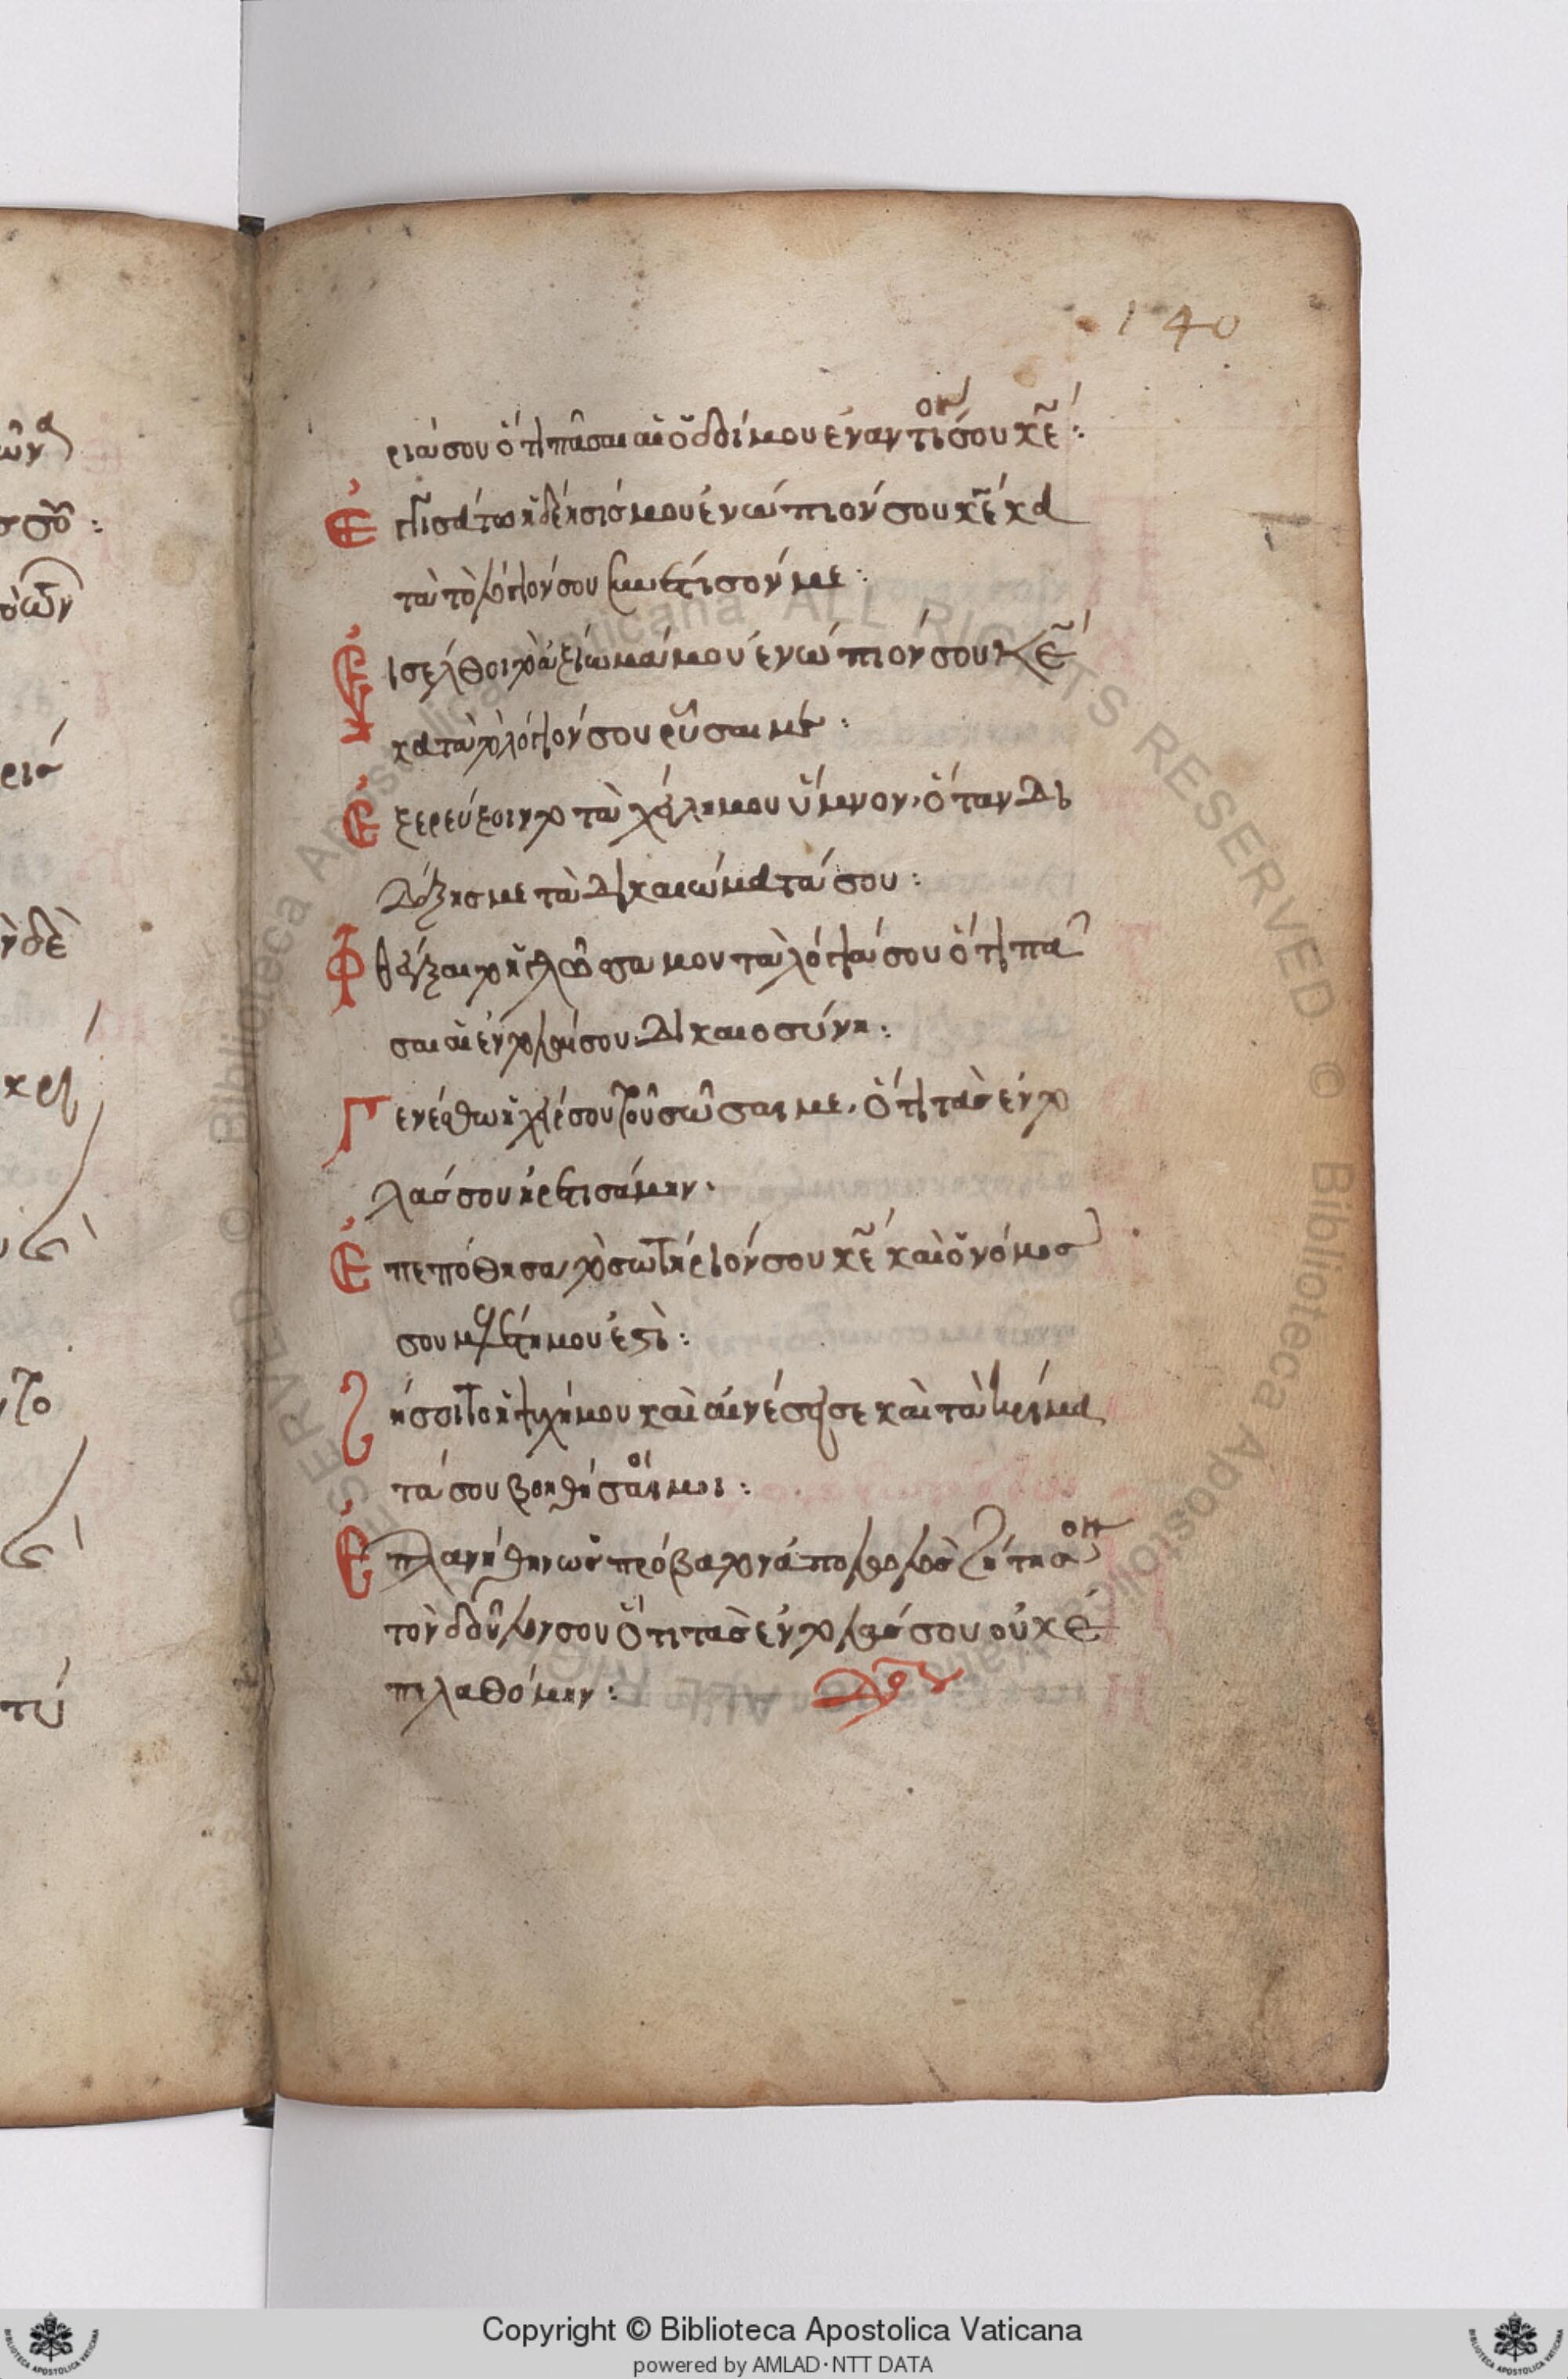 140
ριά σου ὅτι πᾶσαι αἱ ὁδοί μου ἐναντίον σου κε:
Ἐγγισάτω ἡ δέησίς μου ἐνώπιόν σου κε κα
τὰ τὸ λόγιόν σου συνέτισόν με:
Εἰσέλθοι τὸ ἀξίωμά μου ἐνώπιόν σου κε
κατὰ τὸ λόγιόν σου ῥῦσαι με:
Ἐξερεύξοιντο τὰ χείλη μου ὕμνον, ὅταν δι
δάξης με τὰ δικαιώματά σου:
Φθέγξαιτο ἡ γλῶσσα μου τὰ λόγιά σου ὅτι πᾶ
σαι αἱ ἐντολαί σου δικαιοσύνη:
Γενέσθω ἡ χείρ σου τοῦ σῶσαι με, ὅτι τὰς ἐντο
λάς σου ἡρετισάμην.
Ἐπεπόθησα τὸ σωτήριόν σου κε καὶ ὁ νόμος
σου μελέτη μου ἐστὶ:
Ζήσεται ἡ ψυχή μου καὶ αἰνέσει σε καὶ τὰ κρίμα
τά σου βοηθήσει μοι:
Ἐπλανήθην ὡς πρόβατον ἀπολωλὸς ζήτησον
τὸν δοῦλον σου ὅτι τὰς ἐντολάς σου οὐκ ἐ
πελαθόμην:
Copyright © Biblioteca Apostolica Vaticana
powered by AMLAD·NTT DATA